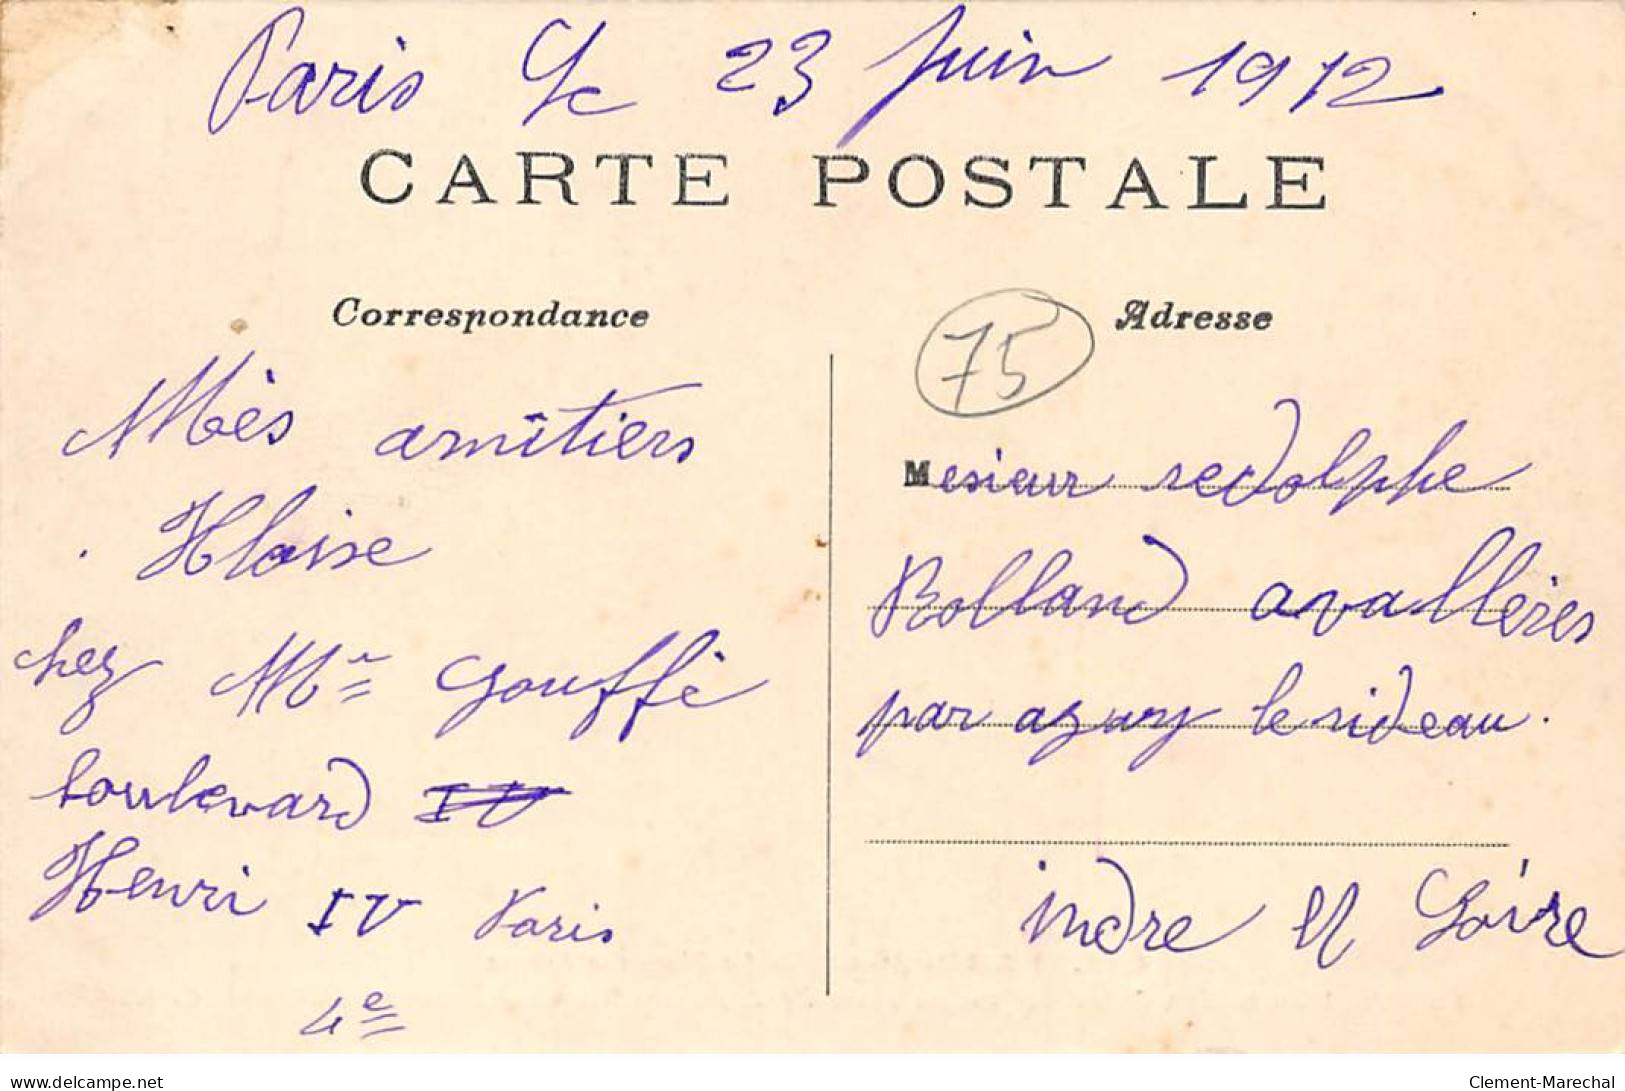 Paris Le 23 Juin 1912
CARTE POSTALE
Correspondance
Mès amitiers
Hloise
chez Mr Gouffé
boulevard IV
Henri IV Paris
4e
75
Adresse
Mesieur redolphe
Rolland avallères
par azay le rideau.
indre et Loire
www.delcampe.net
Clement-Marechal